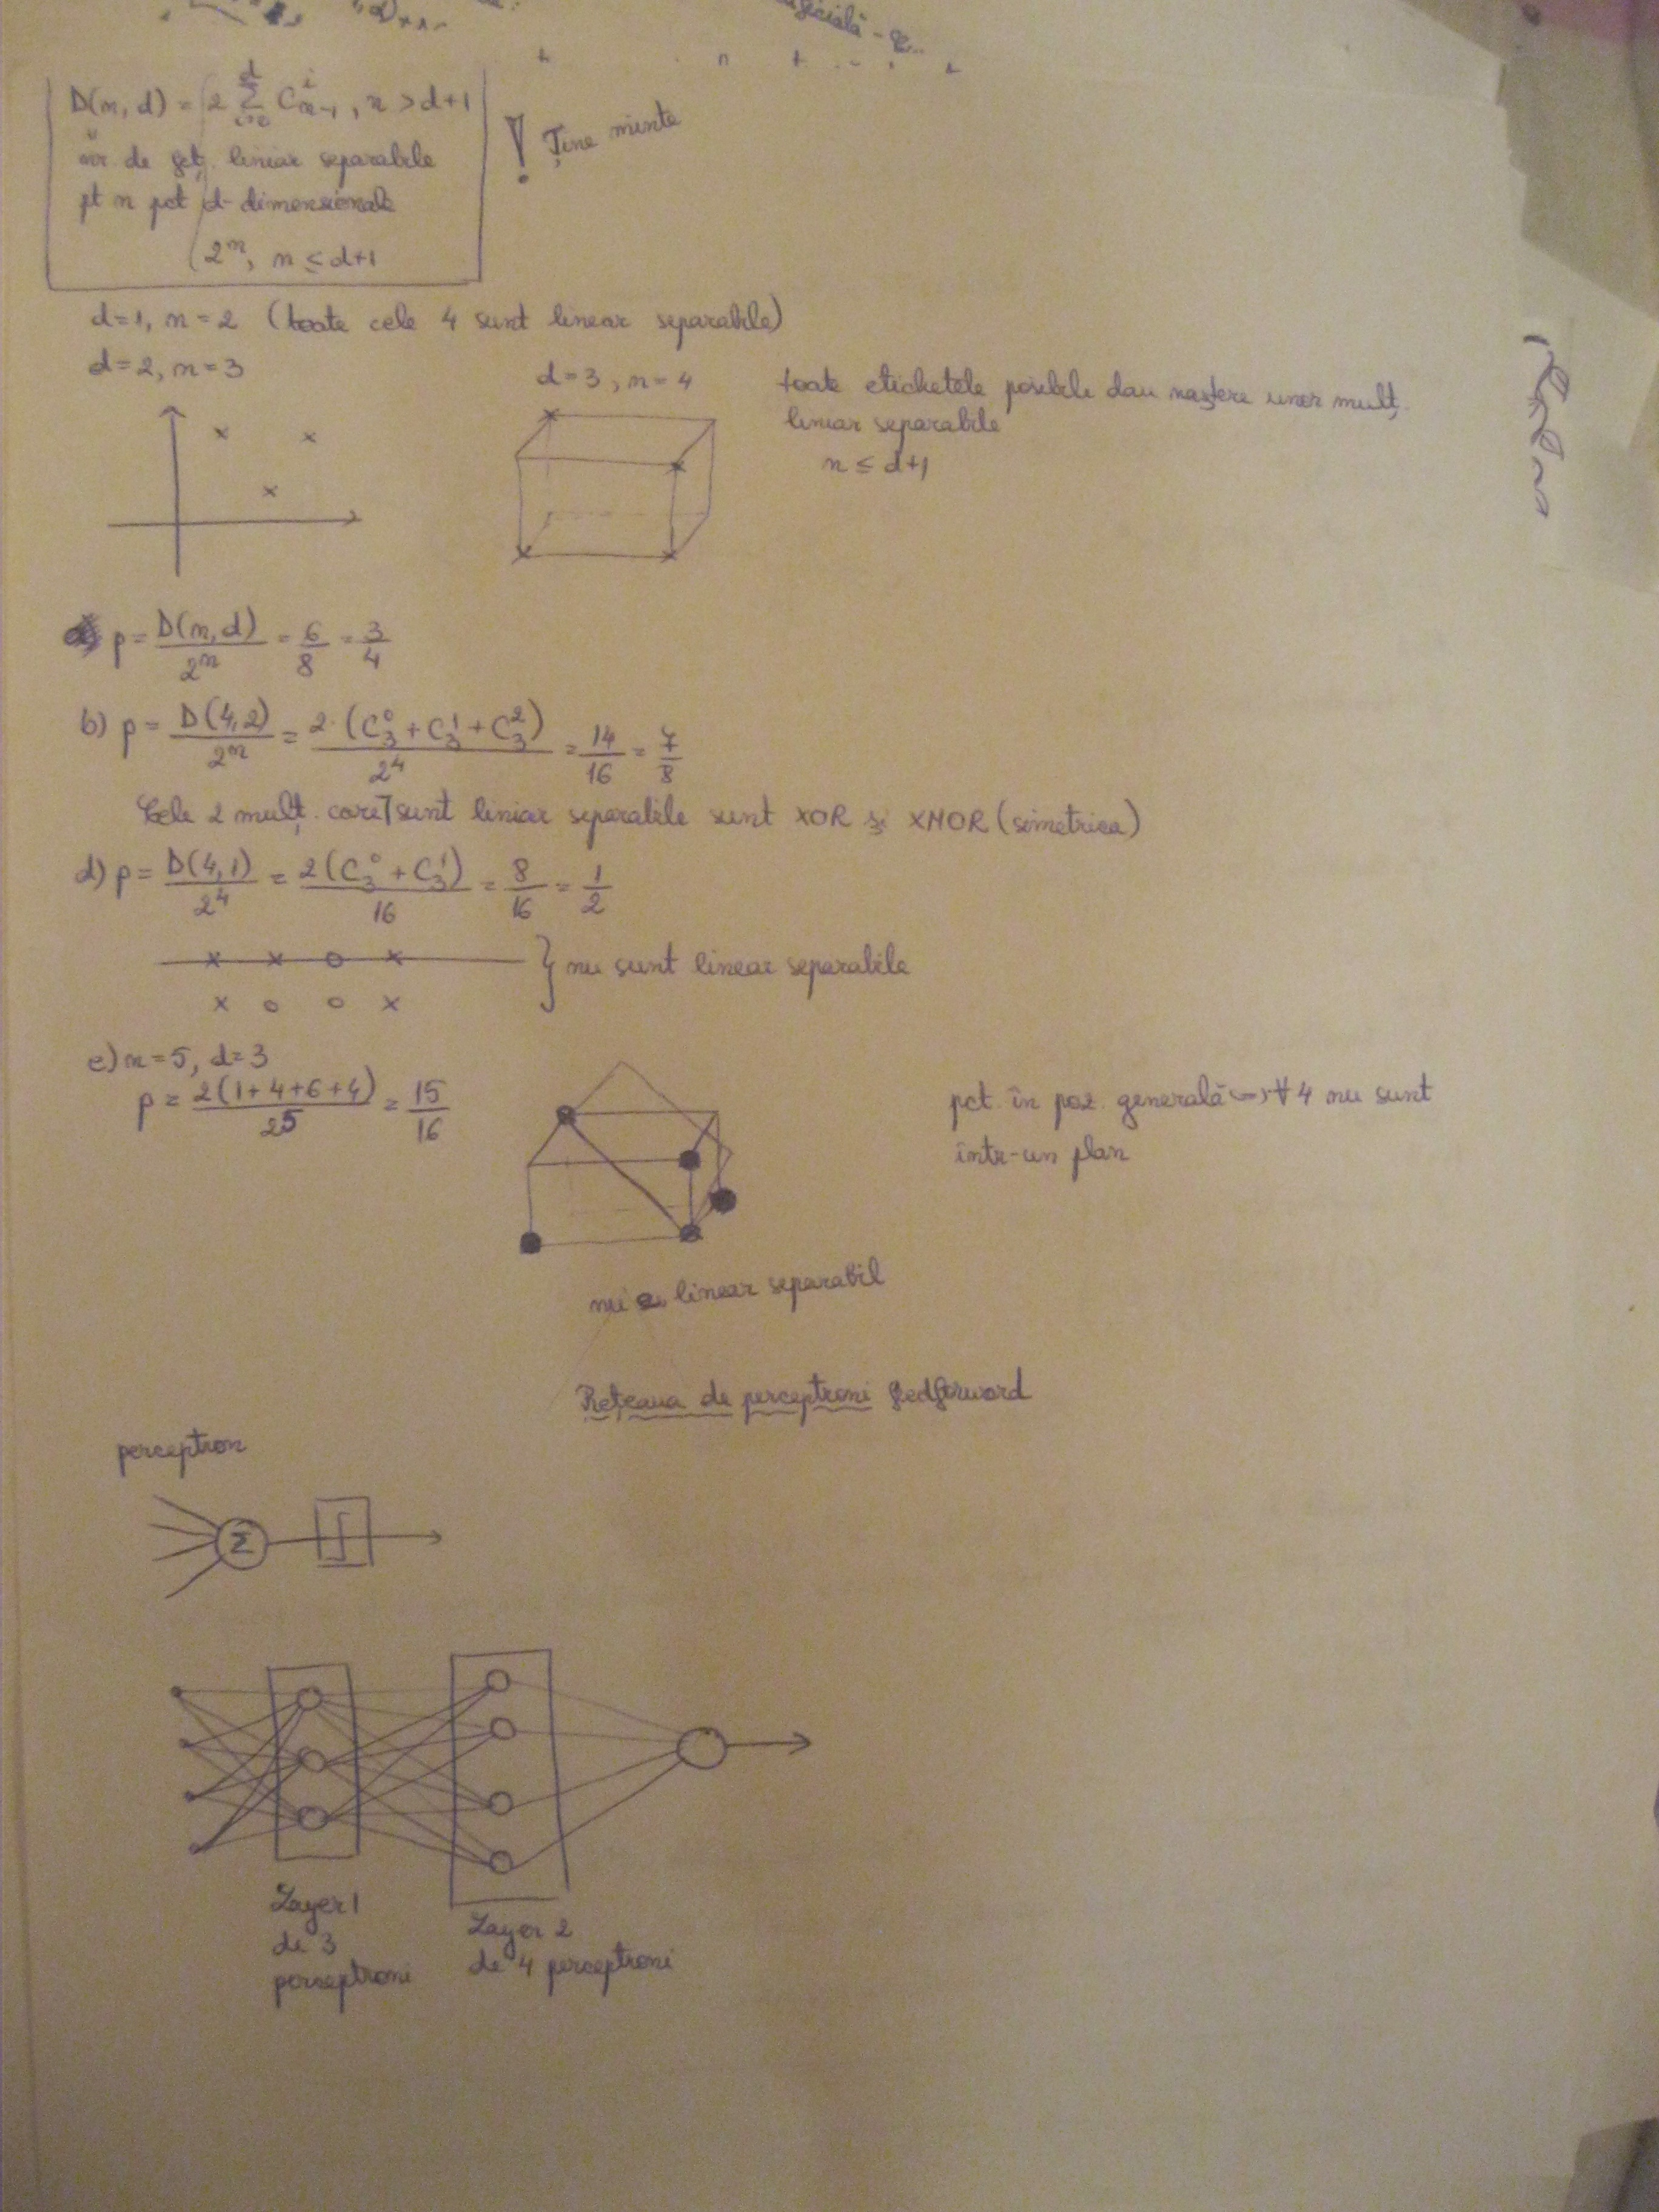 D(n, d) = { 2 \sum_{i=0}^{d} C_{n-1}^{i}, n > d+1
nr. de fct. liniar separabile
pt n pct d-dimensionale
2^n, n ≤ d+1
! Ține minte
d=1, n=2 (toate cele 4 sunt linear separabile)
d=2, n=3
d=3, n=4
toate etichetele posibile dau naștere unor mulț.
liniar separabile
n ≤ d+1
p = D(n,d)/2^n = 6/8 = 3/4
b) p = D(4,2)/2^n = 2·(C_3^0 + C_3^1 + C_3^2)/2^4 = 14/16 = 7/8
Cele 2 mulț. care ¬sunt liniar separabile sunt XOR și XNOR (simetrica)
d) p = D(4,1)/2^4 = 2(C_3^0 + C_3^1)/16 = 8/16 = 1/2
x x o x
x o o x
} nu sunt linear separabile
e) n=5, d=3
p = 2(1+4+6+4)/2^5 = 15/16
pct. în poz. generală ⇔ ∀ 4 nu sunt
într-un plan
nu e linear separabil
Rețeaua de perceptroni fedforword
perceptron
Σ
Layer 1
de 3
perceptroni
Layer 2
de 4 perceptroni